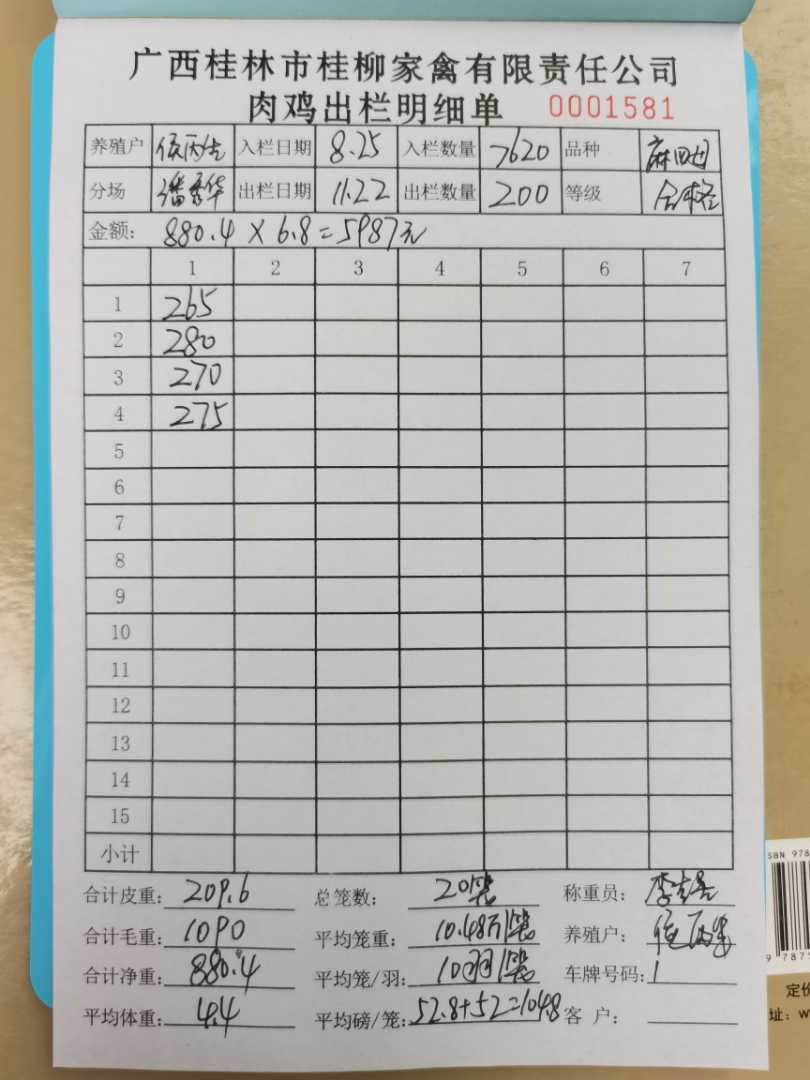 广西桂林市桂柳家禽有限责任公司
肉鸡出栏明细单 0001581
养殖户 入栏日期 8.25 入栏数量 7620 品种
分场 出栏日期 11.22 出栏数量 200 等级 合格
金额: 880.4 × 6.8 = 5987元
1 2 3 4 5 6 7
1 265
2 280
3 270
4 275
5
6
7
8
9
10
11
12
13
14
15
小计
合计皮重: 209.6 总笼数: 20笼 称重员:
合计毛重: 1090 平均笼重: 10.48斤/笼 养殖户:
合计净重: 880.4 平均笼/羽: 10羽/笼 车牌号码: 1
平均体重: 4.4 平均磅/笼: 52.8+52=104.8 客 户:
SBN 978
9 787
定价
址: w